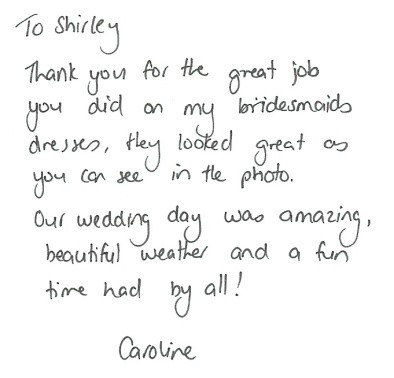 To Shirley
Thank you for the great job
you did on my bridesmaids
dresses, they looked great as
you can see in the photo.
Our wedding day was amazing,
beautiful weather and a fun
time had by all!
Caroline